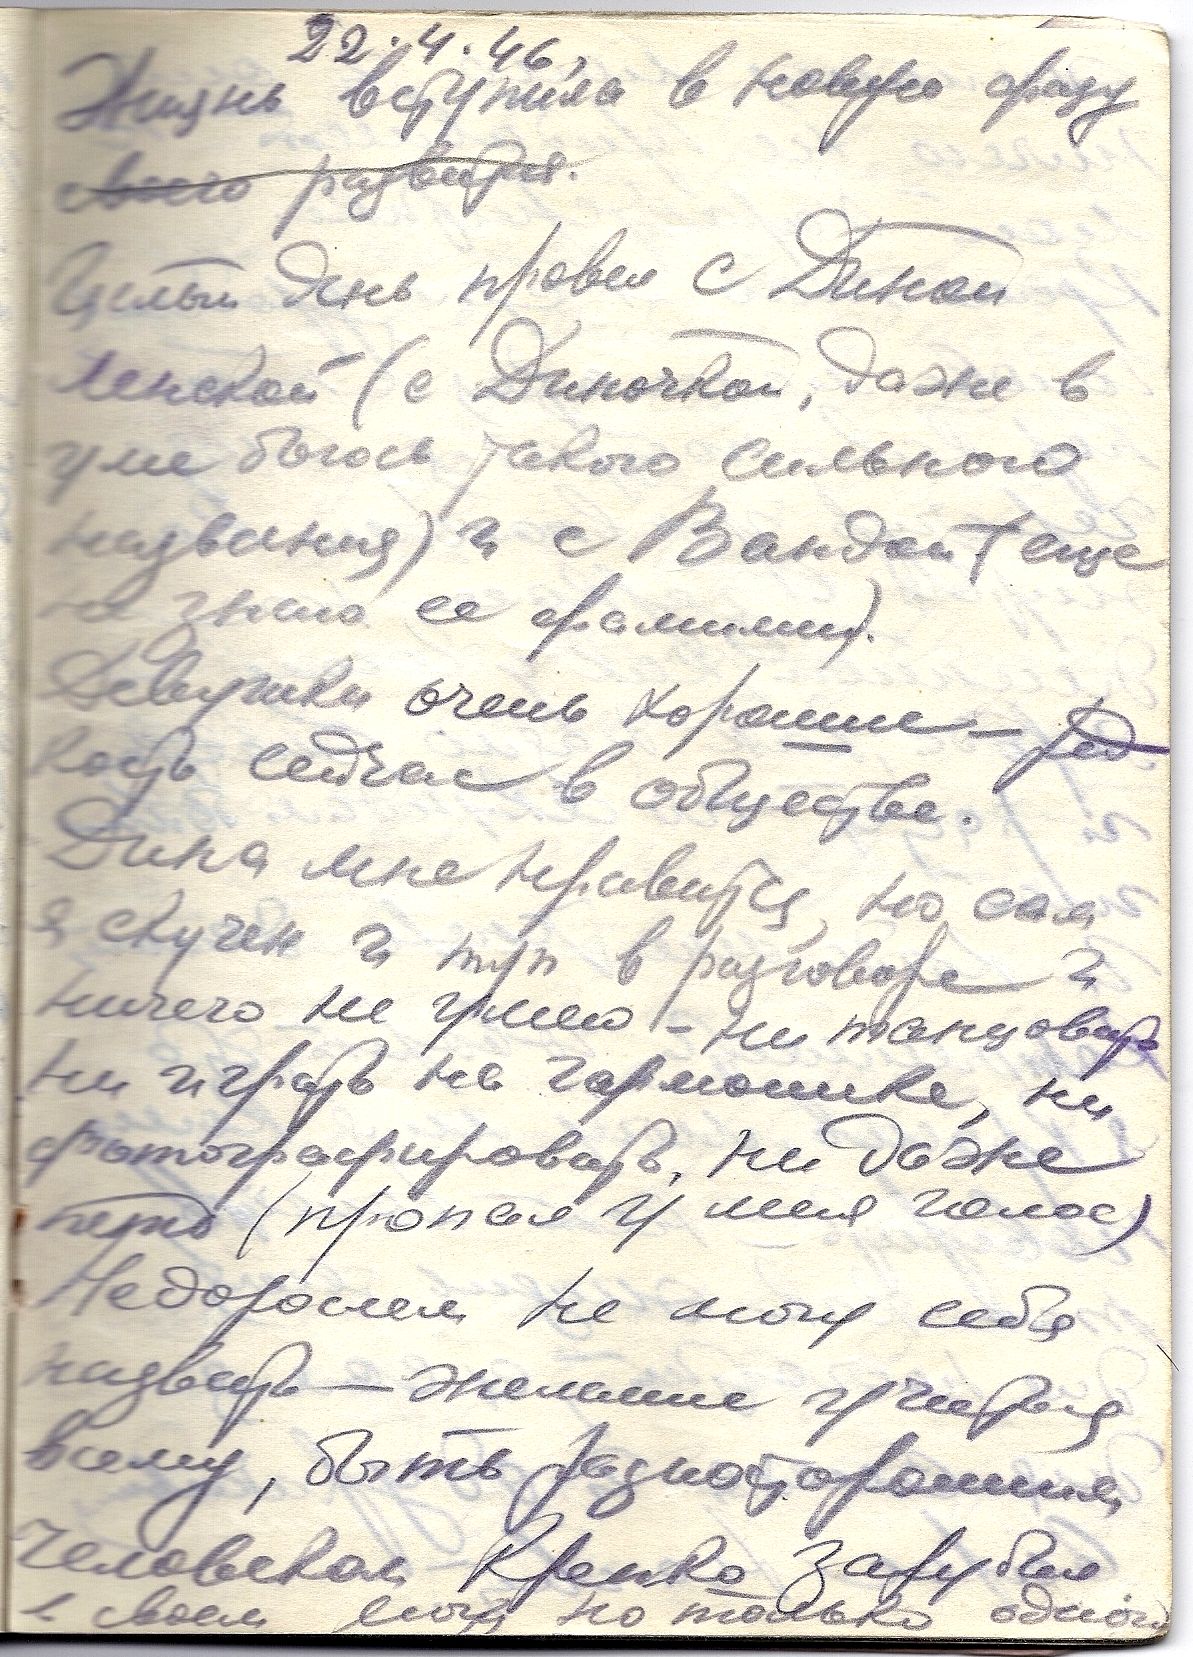 22.4.46.
Жизнь вступила в новую фазу
своего развития.
Целый день провел с Диной
Ленской (с Диночкой, даже в
уме боюсь такого сильного
названия) и с Вандой (еще
не знаю ее фамилии).
Девушки очень хорошие – ред
кость сейчас в обществе.
Дина мне нравится, но сам
я скучен и туп в разговоре и
ничего не умею – ни танцовать
ни играть на гармошке, ни
фотографировать, ни даже
петь (пропал у меня голос)
Недорослем не могу себя
назвать – желание учиться
всему, быть разносторонним
человеком крепко зарубил
в своем мозгу но только одного